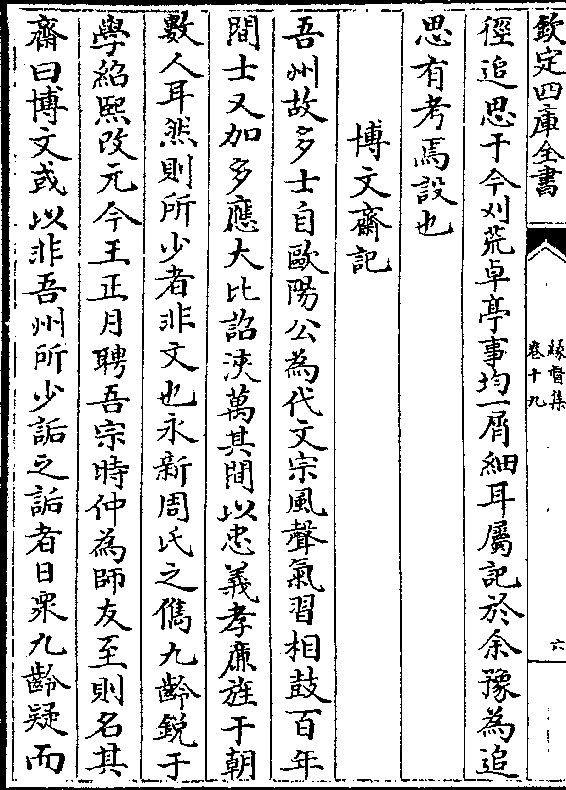 欽定四庫全書
緣督集
卷十九
六
徑追思于今刈荒卓亭事均一屑細耳屬記於余豫為追
思有考焉設也
博文齋記
吾州故多士自歐陽公為代文宗風聲氣習相鼓一百年
間士又加多應大比詔浹萬其間以忠義孝廉旌于朝
數人耳然則所少者非文也永新周氏之儁九齡鋭于
學紹熙改元今王正月聘吾宗時仲為師友至則名其
齋曰博文或以非吾州所少詬之詬者日衆九齡疑而